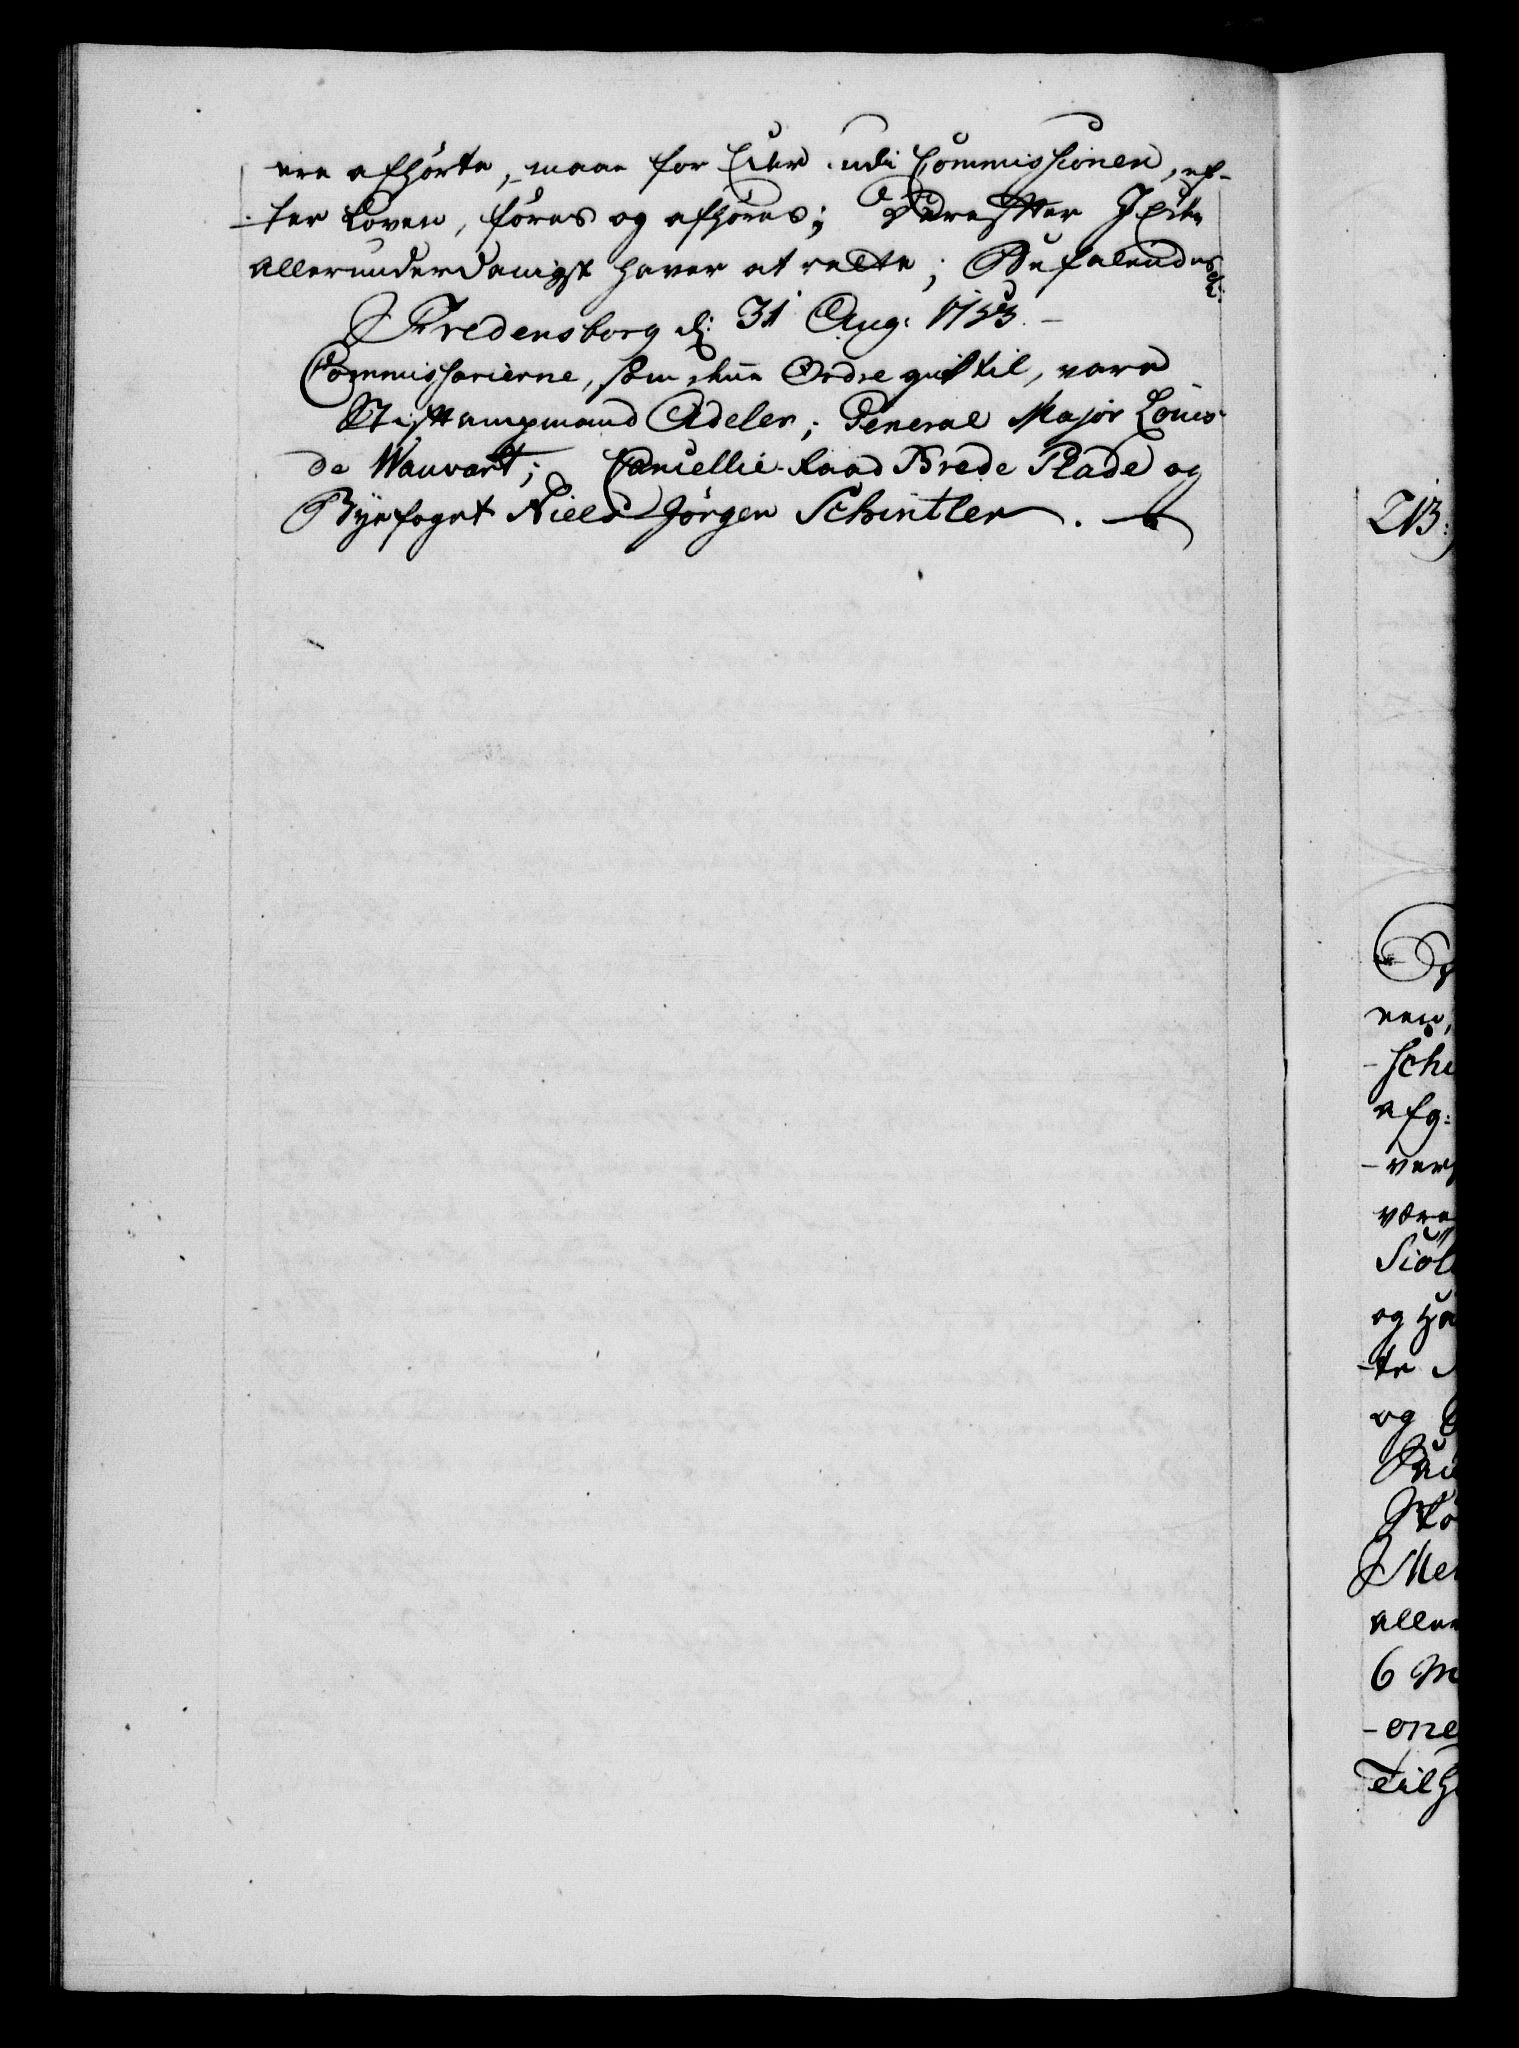 ere afhörte, maae for Eder udi Commissionen, ef-
-ter Loven, föres og afhöres; Derefter I Eder
allerunderdanigst haver at rette; Befalendes etc:
Fredensborg d: 31 Aug: 1753.
Commissarierne, som denne Ordre gik til, vare
Stiftamtmand Adeler; General Major Louis
de Wauvart; Cancellie-Raad Brede Plade og
Byefoget Niels Jörgen Schintler.
213:
een,
-schi
afg:
-vers
være
Siöl
og Ha
-te
og
Mer
aller
6 M
-one
Tilh